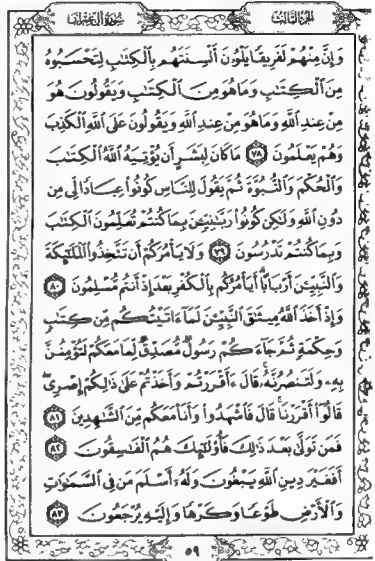 سورة آل عمران الجزء الثالث
وَإِنَّ مِنْهُمْ لَفَرِيقًا يَلْوُۥنَ أَلْسِنَتَهُم بِٱلْكِتَٰبِ لِتَحْسَبُوهُ
مِنَ ٱلْكِتَٰبِ وَمَا هُوَ مِنَ ٱلْكِتَٰبِ وَيَقُولُونَ هُوَ
مِنْ عِندِ ٱللَّهِ وَمَا هُوَ مِنْ عِندِ ٱللَّهِ وَيَقُولُونَ عَلَى ٱللَّهِ ٱلْكَذِبَ
وَهُمْ يَعْلَمُونَ ٧٨ مَا كَانَ لِبَشَرٍ أَن يُؤْتِيَهُ ٱللَّهُ ٱلْكِتَٰبَ
وَٱلْحُكْمَ وَٱلنُّبُوَّةَ ثُمَّ يَقُولَ لِلنَّاسِ كُونُوا۟ عِبَادًا لِّى مِن
دُونِ ٱللَّهِ وَلَٰكِن كُونُوا۟ رَبَّٰنِيِّۦنَ بِمَا كُنتُمْ تُعَلِّمُونَ ٱلْكِتَٰبَ
وَبِمَا كُنتُمْ تَدْرُسُونَ ٧٩ وَلَا يَأْمُرَكُمْ أَن تَتَّخِذُوا۟ ٱلْمَلَٰٓئِكَةَ
وَٱلنَّبِيِّۦنَ أَرْبَابًا أَيَأْمُرُكُم بِٱلْكُفْرِ بَعْدَ إِذْ أَنتُم مُّسْلِمُونَ ٨٠
وَإِذْ أَخَذَ ٱللَّهُ مِيثَٰقَ ٱلنَّبِيِّۦنَ لَمَآ ءَاتَيْتُكُم مِّن كِتَٰبٍ
وَحِكْمَةٍ ثُمَّ جَآءَكُمْ رَسُولٌ مُّصَدِّقٌ لِّمَا مَعَكُمْ لَتُؤْمِنُنَّ
بِهِۦ وَلَتَنصُرُنَّهُۥ قَالَ ءَأَقْرَرْتُمْ وَأَخَذْتُمْ عَلَىٰ ذَٰلِكُمْ إِصْرِى
قَالُوٓا۟ أَقْرَرْنَا قَالَ فَٱشْهَدُوا۟ وَأَنَا۠ مَعَكُم مِّنَ ٱلشَّٰهِدِينَ ٨١
فَمَن تَوَلَّىٰ بَعْدَ ذَٰلِكَ فَأُو۟لَٰٓئِكَ هُمُ ٱلْفَٰسِقُونَ ٨٢
أَفَغَيْرَ دِينِ ٱللَّهِ يَبْغُونَ وَلَهُۥٓ أَسْلَمَ مَن فِى ٱلسَّمَٰوَٰتِ
وَٱلْأَرْضِ طَوْعًا وَكَرْهًا وَإِلَيْهِ يُرْجَعُونَ ٨٣
٥٩